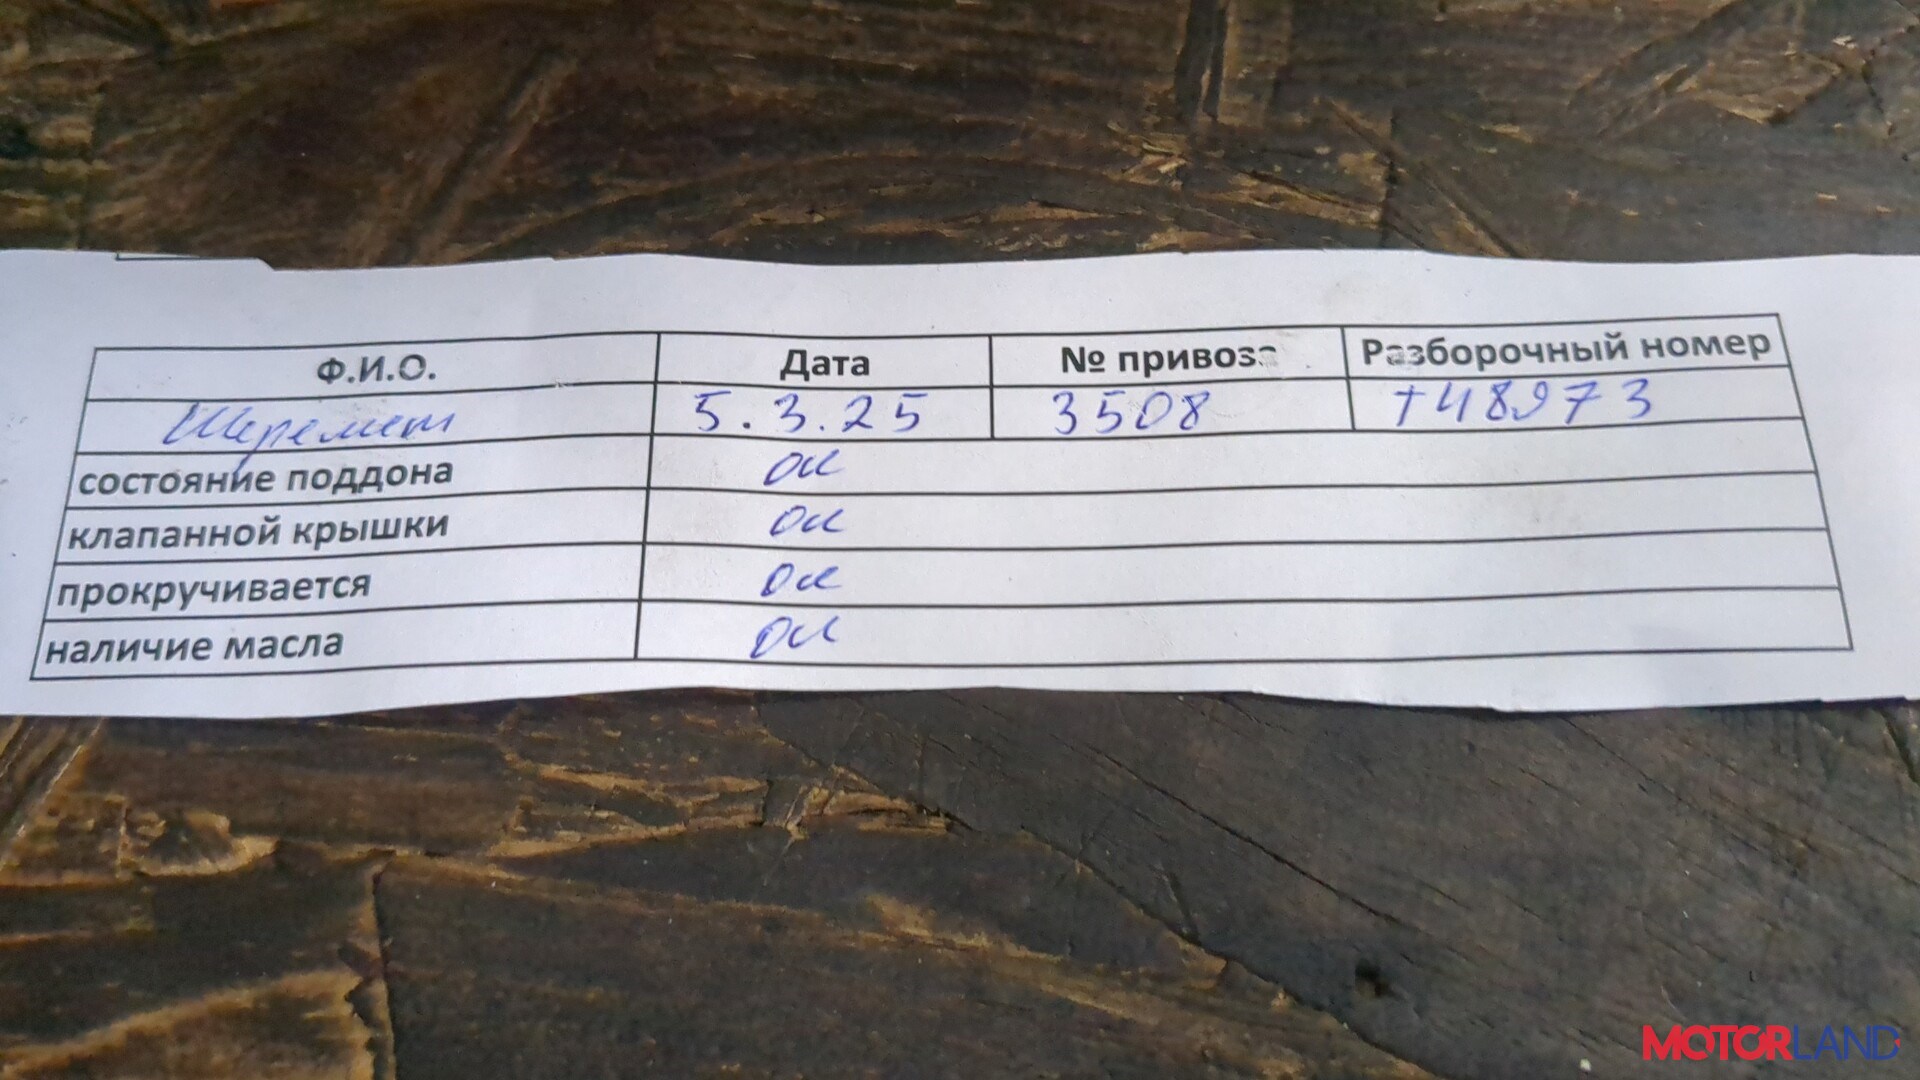 Ф.И.О. Дата № привоза Разборочный номер
Шеремет 5.3.25 3508 т48973
состояние поддона ок
клапанной крышки ок
прокручивается ок
наличие масла ок
MOTORLAND